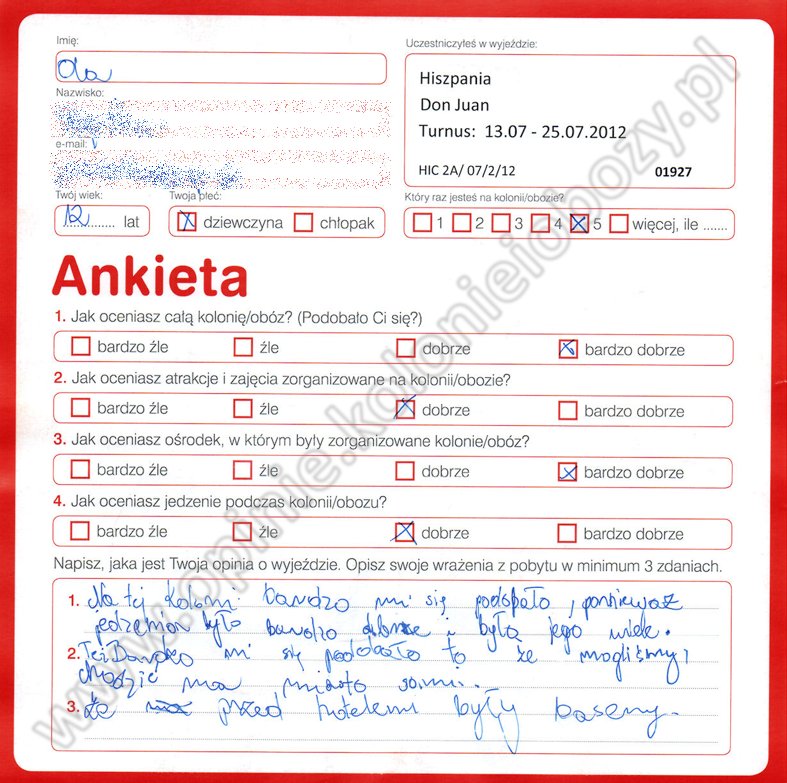 Imię:
Ola
Nazwisko:
e-mail:
Twój wiek:
12 lat
Twoja płeć:
dziewczyna chłopak
Uczestniczyłeś w wyjeździe:
Hiszpania
Don Juan
Turnus: 13.07 - 25.07.2012
HIC 2A/ 07/2/12 01927
Który raz jesteś na kolonii/obozie?
1 2 3 4 5 więcej, ile .......
Ankieta
1. Jak oceniasz całą kolonię/obóz? (Podobało Ci się?)
bardzo źle źle dobrze bardzo dobrze
2. Jak oceniasz atrakcje i zajęcia zorganizowane na kolonii/obozie?
bardzo źle źle dobrze bardzo dobrze
3. Jak oceniasz ośrodek, w którym były zorganizowane kolonie/obóz?
bardzo źle źle dobrze bardzo dobrze
4. Jak oceniasz jedzenie podczas kolonii/obozu?
bardzo źle źle dobrze bardzo dobrze
Napisz, jaka jest Twoja opinia o wyjeździe. Opisz swoje wrażenia z pobytu w minimum 3 zdaniach.
1. Na tej kolonii bardzo mi się podobało, ponieważ
jedzenia było bardzo dobre i było jego wiele.
2. Też Bardzo mi się podobało to że mogliśmy
chodzić na miasto sami.
3. Że przed hotelem były baseny.
www.opinie.kolonieiobozy.pl